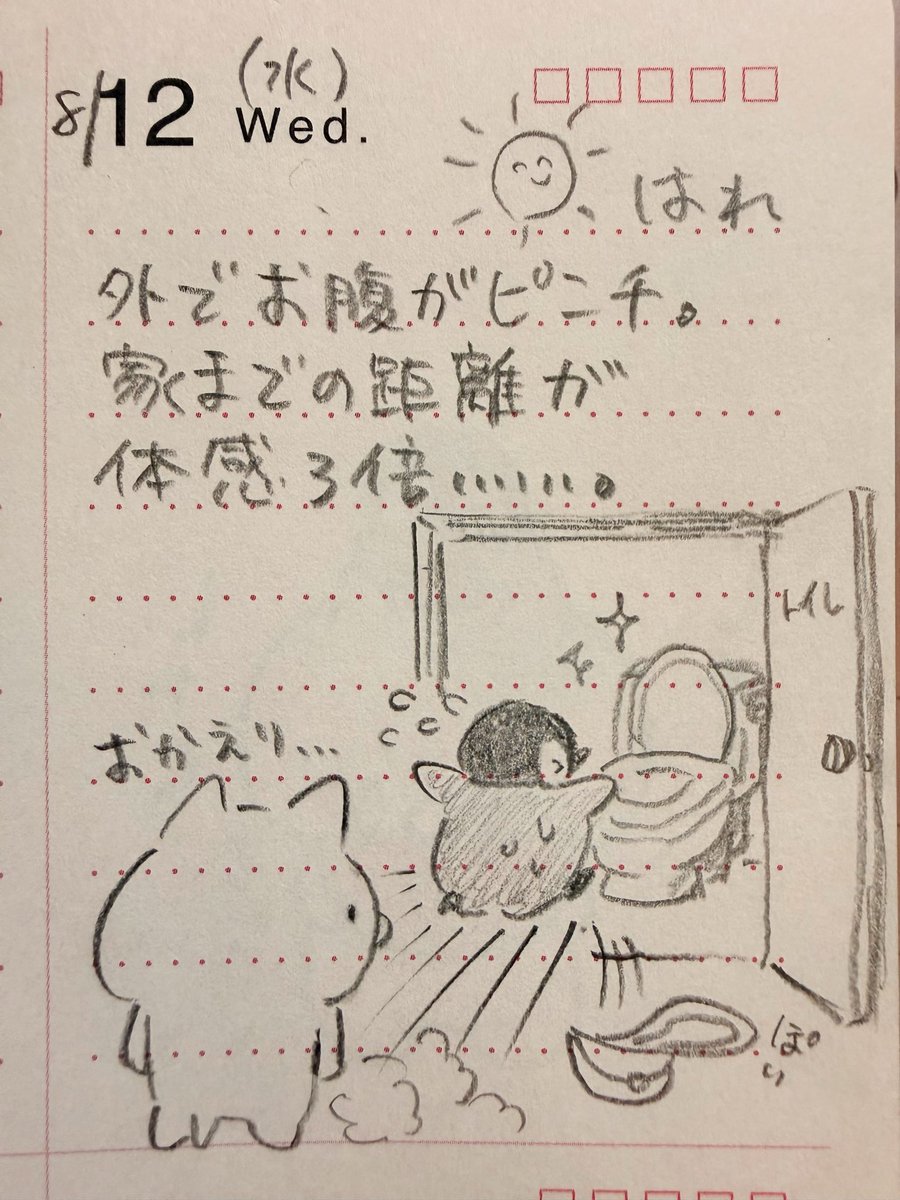 8/12 (水)
Wed.
はれ
外でお腹がピンチ。
家までの距離が
体感3倍.......。
トイレ
おかえり...
ぽい